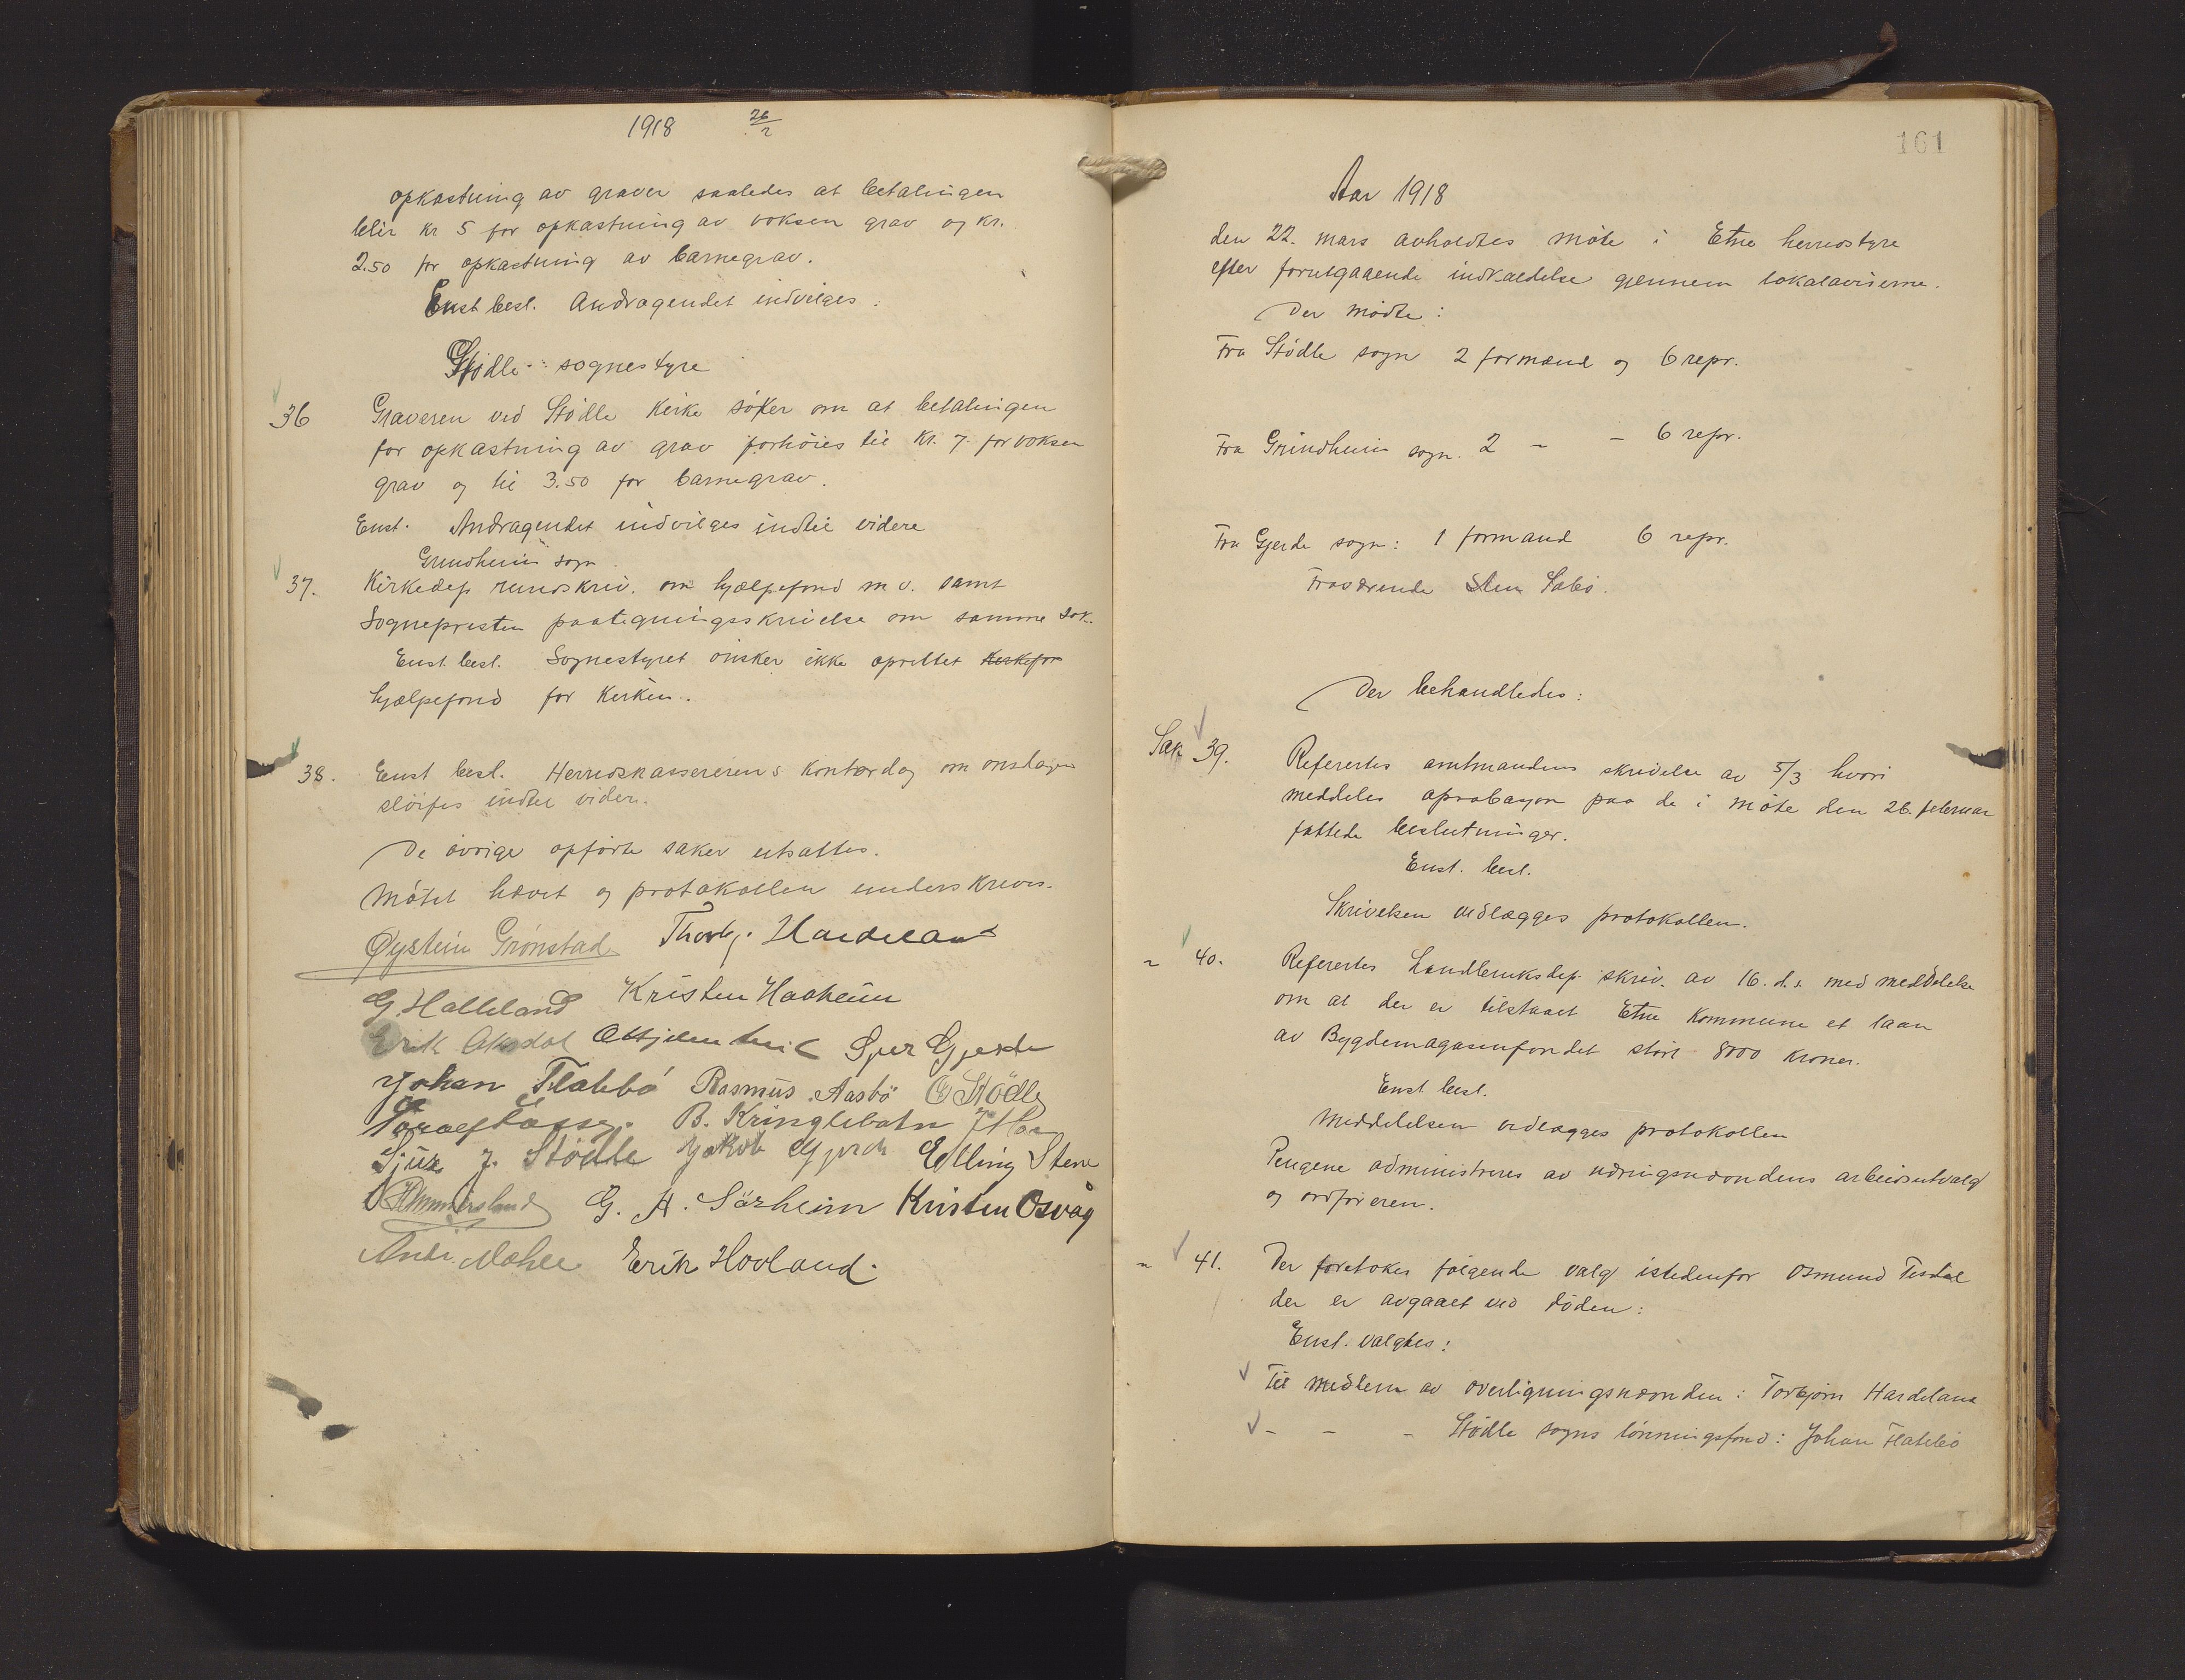 1918 26/2
opkastning av graver saaledes at betalingen
blir kr 5 for opkastning av voksen grav og kr.
2.50 for opkastning av barnegrav.
Enst besl. Andragendet indvilges.
Stødle sognestyre
36 Graveren ved Stødle Kirke søker om at betalingen
for opkastning av grav forhøies til Kr. 7 for voksen
grav og til 3.50 for barnegrav.
Enst. Andragendet indvilges indtil videre
Grindheim sogn.
37. Kirkedep rundskriv. om hjælpefond m v. samt
Sognepresten paategningsskrivelse om samme sak.
Enst. besl. Sognestyret ønsker ikke oprettet Kirkefon
hjælpefond for Kirken.
38. Enst besl. Herredskassererens kontordag om onsdagen
sløifes indtil videre.
De øvrige opførte saker utsattes.
Møtet hævet og protokollen underskreves.
Øystein Grønstad Thorbj. Hardeland
G. Halleland Kristen Haaheim
Erik Aksdal Sjur Gjerde
Johan Flatebø Rasmus Aasbø O Stødle
B. Kringlebotn
Sjur J. Stødle Jakob Gjerde Elling Stene
Hammersland G. A. Särheim Kristen Osvåg
Mæhle Erik Hovland.
161
Aar 1918
den 22. mars avholdtes møte i Etne herredstyre
efter forutgaaende indkaldelse gjennem lokalaviserne.
Der møtte:
Fra Stødle sogn 2 formænd og 6 repr.
Fra Grindheim sogn. 2 - - 6 repr.
Fra Gjerde sogn: 1 formand 6 repr.
Fraværende Sæbø.
Der behandledes:
Sak 39. Referertes amtmandens skrivelse av 5/3 hvori
meddeles aprobasjon paa de i møte den 26. februar
fattede beslutninger.
Enst. besl.
Skrivelsen vedlægges protokollen.
" 40. Referertes Landbruksdep. skriv. av 16. d.s. med meddelelse
om at der er tilstaaet Etne Kommune et laan
av Bygdemagasinfondet stort 8000 kroner.
Enst besl.
Meddelelsen vedlægges protokollen
Pengene administreres av næringsnævndens arbeidsutvalg
og ordføreren.
" 41. Der foretokes følgende valg istedenfor Osmund Tesdal
der er avgaaet ved døden:
Enst. valgtes:
Til medlem av overligningsnævnden: Torbjørn Hardeland
- - - Stødle sogns lønningsfond: Johan Flatebø